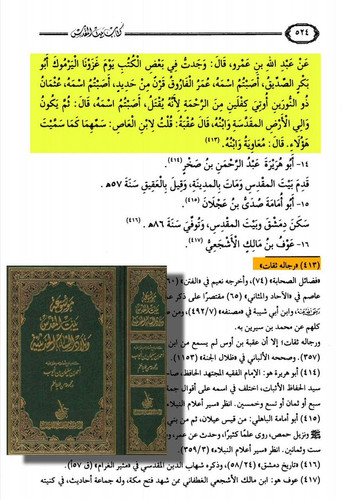 ٥٢٤
عَنْ عَبْدِ اللهِ بنِ عَمْرو، قَالَ: وَجَدتُ فِي بَعْضِ الْكُتُبِ يَوْمَ غَزَوْنَا الْيَرْمُوكَ أَبُو
بَكْرٍ الصِّدِّيقُ، أَصَبْتُمُ اسْمَهُ، عُمَرُ الْفَارُوقُ قَرْنٌ مِنْ حَدِيدٍ، أَصَبْتُمُ اسْمَهُ، عُثْمَانُ
ذُو النُّورَيْنِ أُوتِيَ كِفْلَيْنِ مِنَ الرَّحْمَةِ لأَنَّهُ يُقْتَلُ، أَصَبْتُمُ اسْمَهُ، قَالَ: ثُمَّ يَكُونُ
وَالِي الأَرْضِ الْمقَدَّسَةِ وَابْنُهُ. قَالَ عُقْبَةُ: قُلْتُ لابْنِ الْعَاصِ: سَمِّهِمَا كَمَا سَمَّيْتَ
هَؤُلَاءِ. قَالَ: مُعَاوِيَةُ وَابْنُهُ. (٤١٣)
١٤- أَبُو هُرَيْرَةَ عَبْدُ الرَّحْمَنِ بْنُ صَخْرٍ (٤١٤).
قَدِمَ بَيْتَ الْمقْدِسِ وَمَاتَ بِالمدِينَةِ، وَقِيلَ بِالْعَقِيقِ سَنَةَ ٥٧هـ.
١٥- أَبُو أُمَامَةَ صُدَيُّ بنُ عَجْلَانَ (٤١٥)
سَكَنَ دِمَشْقَ وَبَيْتَ الْمقْدِسِ، وَتُوفِّيَ سَنَةَ ٨٦هـ. (٤١٦)
١٦- عَوْفُ بْنُ مَالِكٍ الأَشْجَعِيُّ (٤١٧)
(٤١٣) «رجاله ثقات»
«فضائل الصحابة» (٧٤)، وأخرجه نعيم في «الفتن» (
عاصم في «الآحاد والمثاني» (٦٥) مقتصرًا على ذكر
وابن أبي شيبة في «مصنفه» (٤٩٢/٧)
كلهم عن محمد بن سيرين به.
ورجاله ثقات؛ إلا أن عقبة بن أوس لم يسمع من
(٣٥٧). وصححه الألباني في «ظلال الجنة» (١١٥٣)
(٤١٤) أبو هريرة: هو الإمام الفقيه المجتهد الحافظ،
سيد الحفاظ الأثبات، اختلف في اسمه على أقوال
سبع أو ثمان أو تسع وخمسين. انظر «سير أعلام
(٤١٥) أبو أمامة الباهلي: من قيس عيلان،
ونزيل حمص، روى علمًا كثيرًا، وحدث عن عمر،
ست وثمانين. انظر «سير أعلام النبلاء» (٣٥٩/٣)
(٤١٦) «تاريخ دمشق» (٥٨/٢٤)، وذكره شهاب الدين المقدسي في «مثير الغرام» (ق ٥٧أ)
(٤١٧) عوف: هو ابن مالك الأشجعي الغطفاني ممن شهد فتح مكة، وله جماعة أحاديث، في كنيته